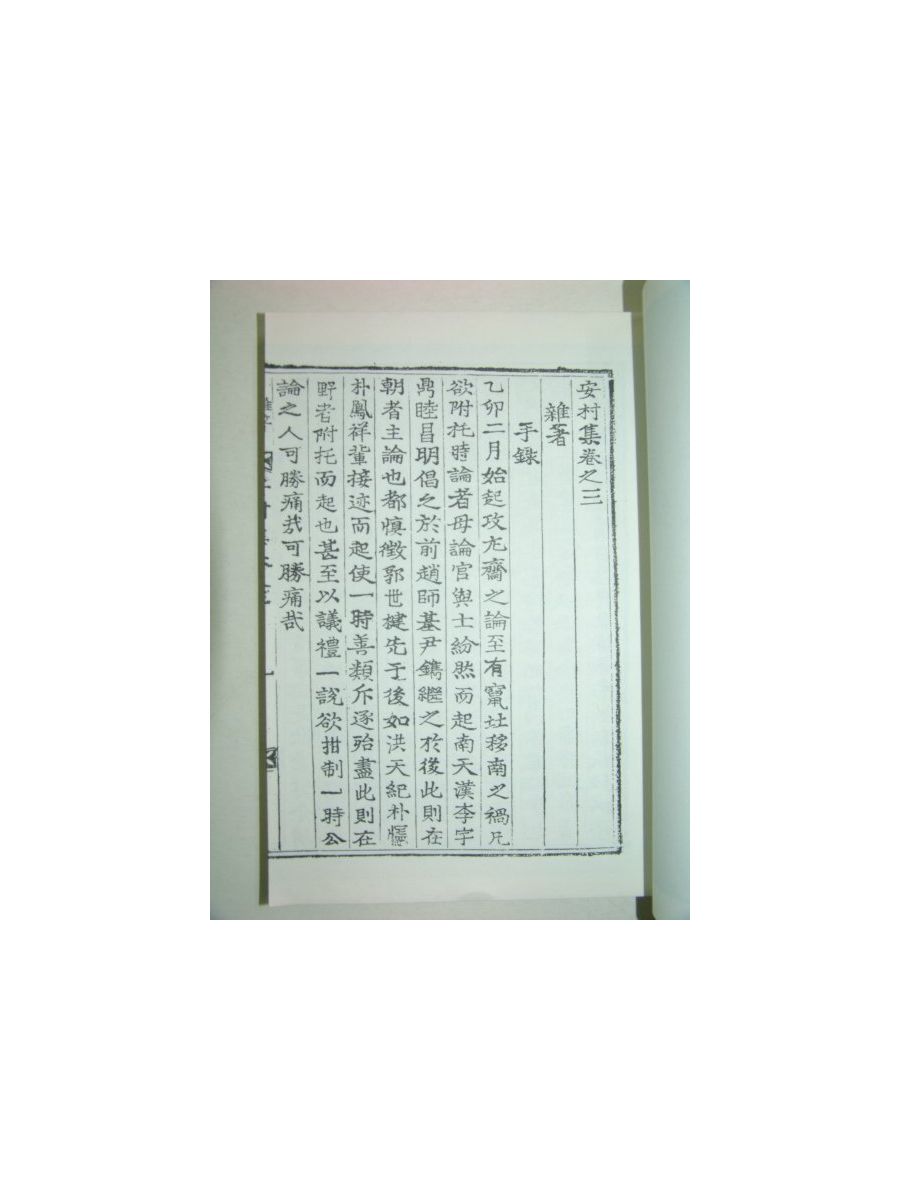 安村集卷之三
雜著
手錄
乙卯二月始起攻尤齋之論至有竄北移南之禍凡
欲附托時論者毋論官與士紛然而起南天漢李宇
鼎睦昌明倡之於前趙師基尹鑴繼之於後此則在
朝者主論也都愼徵郭世楗先于後如洪天紀朴
朴鳳祥輩接迹而起使一時善類斥逐殆盡此則在
野者附托而起也甚至以議禮一說欲拑制一時公
論之人可勝痛哉可勝痛哉